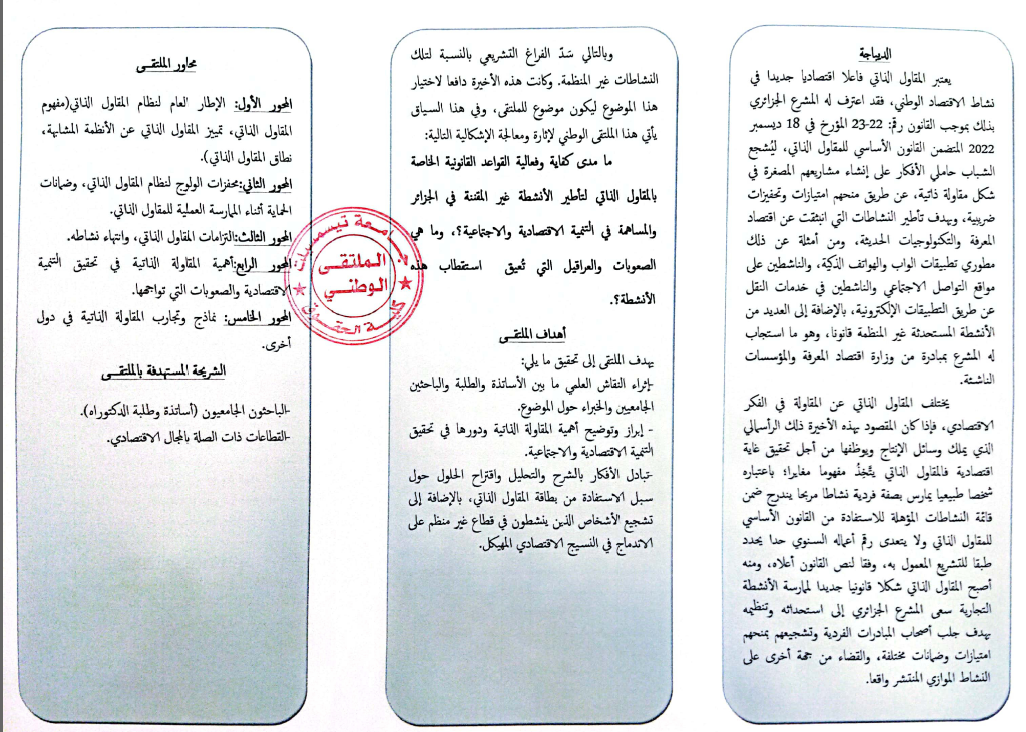 الديباجة
يعتبر المقاول الذاتي فاعلا اقتصاديا جديدا في
نشاط الاقتصاد الوطني، فقد اعترف له المشرع الجزائري
بذلك بموجب القانون رقم: 22-23 المؤرخ في 18 ديسمبر
2022 المتضمن القانون الأساسي للمقاول الذاتي، ليُشجع
الشباب حاملي الأفكار على إنشاء مشاريعهم المصغرة في
شكل مقاولة ذاتية، عن طريق منحهم امتيازات وتحفيزات
ضريبية، وبهدف تأطير النشاطات التي انبثقت عن اقتصاد
المعرفة والتكنولوجيات الحديثة، ومن أمثلة عن ذلك
مطوري تطبيقات الواب والهواتف الذكية، والناشطين على
مواقع التواصل الاجتماعي والناشطين في خدمات النقل
عن طريق التطبيقات الإلكترونية، بالإضافة إلى العديد من
الأنشطة المستحدثة غير المنظمة قانونا، وهو ما استجاب
له المشرع بمبادرة من وزارة اقتصاد المعرفة والمؤسسات
الناشئة.
يختلف المقاول الذاتي عن المقاولة في الفكر
الاقتصادي، فإذا كان المقصود بهذه الأخيرة ذلك الرأسمالي
الذي يملك وسائل الإنتاج ويوظفها من أجل تحقيق غاية
اقتصادية فالمقاول الذاتي يتّخِذُ مفهوما مغايرا؛ باعتباره
شخصا طبيعيا يمارس بصفة فردية نشاطا مربحا يندرج ضمن
قائمة النشاطات المؤهلة للاستفادة من القانون الأساسي
للمقاول الذاتي ولا يتعدى رقم أعماله السنوي حدا يحدد
طبقا للتشريع المعمول به، وفقا لنص القانون أعلاه، ومنه
أصبح المقاول الذاتي شكلا قانونيا جديدا لممارسة الأنشطة
التجارية سعى المشرع الجزائري إلى استحداثه وتنظيمه
بهدف جلب أصحاب المبادرات الفردية وتشجيعهم بمنحهم
امتيازات وضمانات مختلفة، والقضاء من جهة أخرى على
النشاط الموازي المنتشر واقعا.
وبالتالي سَدّ الفراغ التشريعي بالنسبة لتلك
النشاطات غير المنظمة. وكانت هذه الأخيرة دافعا لاختيار
هذا الموضوع ليكون موضوع للملتقى، وفي هذا السياق
يأتي هذا الملتقى الوطني لإثارة ومعالجة الإشكالية التالية:
ما مدى كفاية وفعالية القواعد القانونية الخاصة
بالمقاول الذاتي لتأطير الأنشطة غير المقننة في الجزائر
والمساهمة في التنمية الاقتصادية والاجتماعية؟، وما هي
الصعوبات والعراقيل التي تُعيق استقطاب هذه
الأنشطة؟.
أهداف الملتقــى
يهدف الملتقى إلى تحقيق ما يلي:
-إثراء النقاش العلمي ما بين الأساتذة والطلبة والباحثين
الجامعيين والخبراء حول الموضوع.
- إبراز وتوضيح أهمية المقاولة الذاتية ودورها في تحقيق
التنمية الاقتصادية والاجتماعية.
-تبادل الأفكار بالشرح والتحليل واقتراح الحلول حول
سبل الاستفادة من بطاقة المقاول الذاتي، بالإضافة إلى
تشجيع الأشخاص الذين ينشطون في قطاع غير منظم على
الاندماج في النسيج الاقتصادي المهيكل.
محاور الملتقــى
المحور الأول: الإطار العام لنظام المقاول الذاتي(مفهوم
المقاول الذاتي، تمييز المقاول الذاتي عن الأنظمة المشابهة،
نطاق المقاول الذاتي).
المحور الثاني:محفزات الولوج لنظام المقاول الذاتي، وضمانات
الحماية أثناء الممارسة العملية للمقاول الذاتي.
المحور الثالث:التزامات المقاول الذاتي، وانتهاء نشاطه.
المحور الرابع:أهمية المقاولة الذاتية في تحقيق التنمية
الاقتصادية والصعوبات التي تواجهها.
المحور الخامس: نماذج وتجارب المقاولة الذاتية في دول
أخرى.
الشريحة المستهدفة بالملتقــى
-الباحثون الجامعيون (أساتذة وطلبة الدكتوراه).
-القطاعات ذات الصلة بالمجال الاقتصادي.
جامعة تيسمسيلت
الملتقى
الوطني
كلية الحقوق